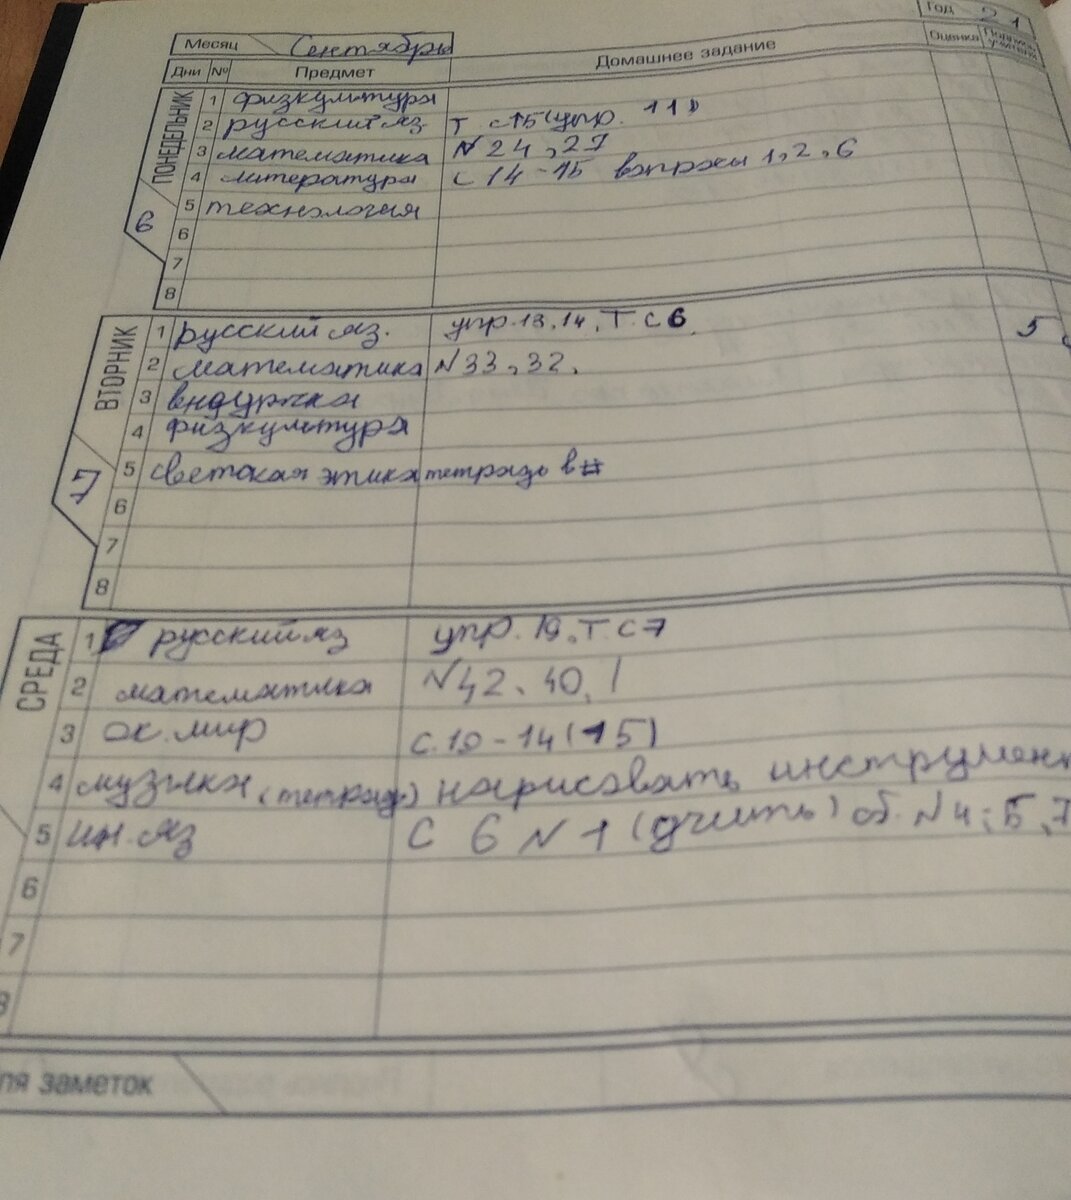 Год 21
Месяц Сентябрь
Дни № Предмет Домашнее задание Оценка Подпись учителя
ПОНЕДЕЛЬНИК
1 физкультура
2 русский яз Т с 15 (упр. 11)
3 математика № 24, 27
4 литература с 14-15 вопросы 1, 2, 6
5 технология
6
6
7
8
ВТОРНИК
1 русский яз. упр. 13, 14, Т. с 6 5
2 математика № 33, 32,
3
4 физкультура
5 светская этика тетрадь в #
7
6
7
8
СРЕДА
1 русский яз упр. 19, Т. с 7
2 математика № 42, 40, 1
3 ок. мир с. 10-14 (15)
4 музыка (тетрадь) нарисовать инструмен
5 ин. яз с 6 № 1 (учить) сб. № 4; 5, 7
6
7
8
ля заметок